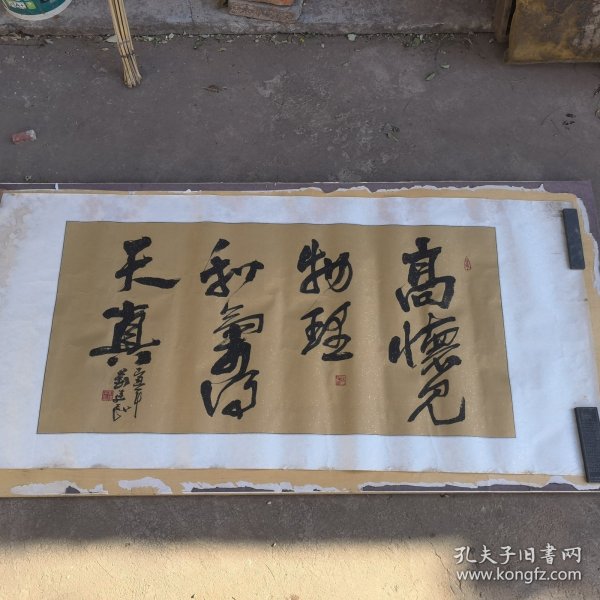 高懷見
物理
和氣得
天真
孔夫子旧书网
www.kongfz.com